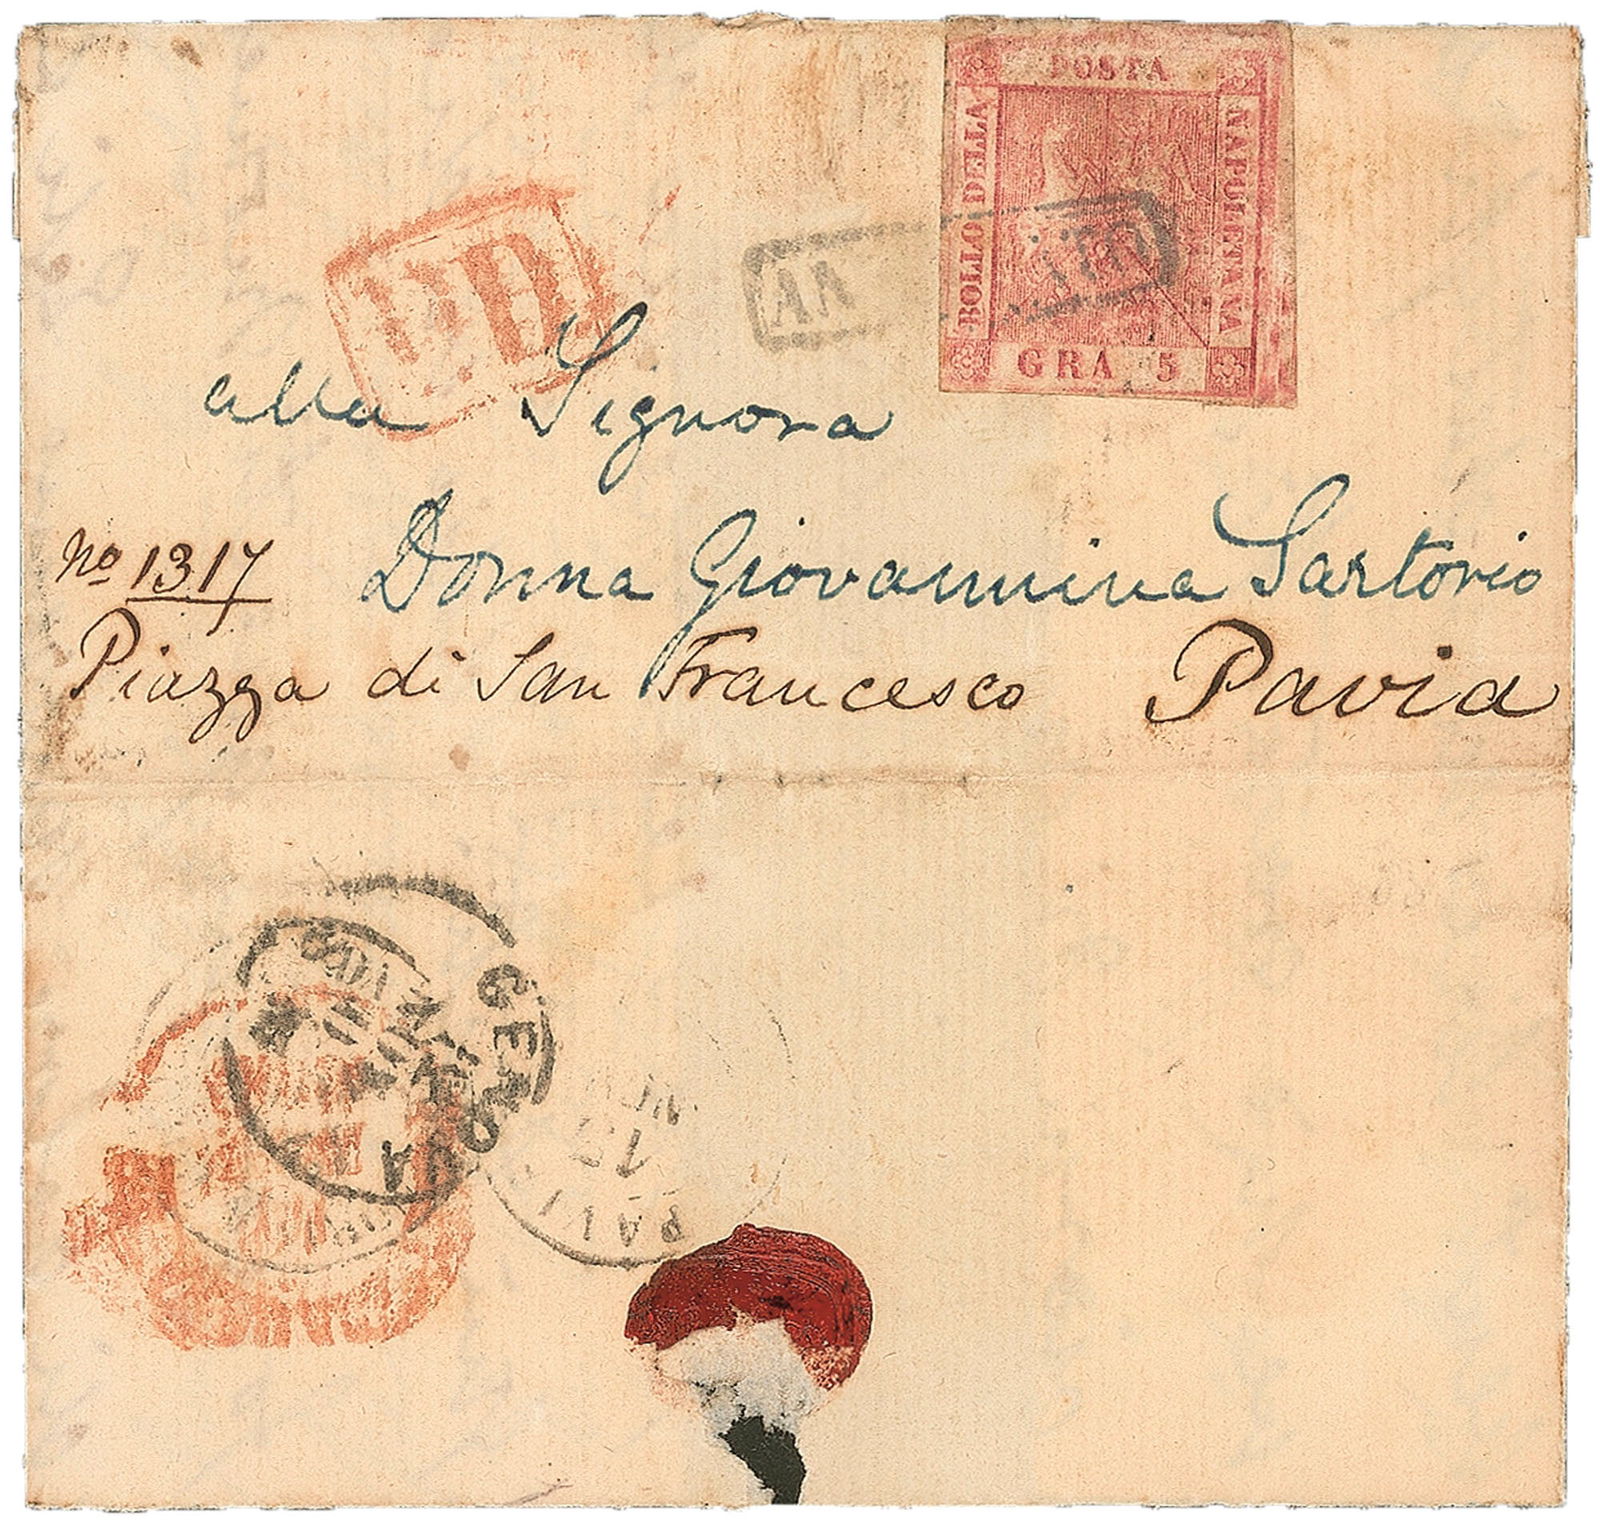 POSTA
BOLLO DELLA
NAPOLETANA
GRA 5
PD
alla Signora
No 1317 Donna Giovannina Sartorio
Piazza di San Francesco Pavia
GENOVA
PAVIA